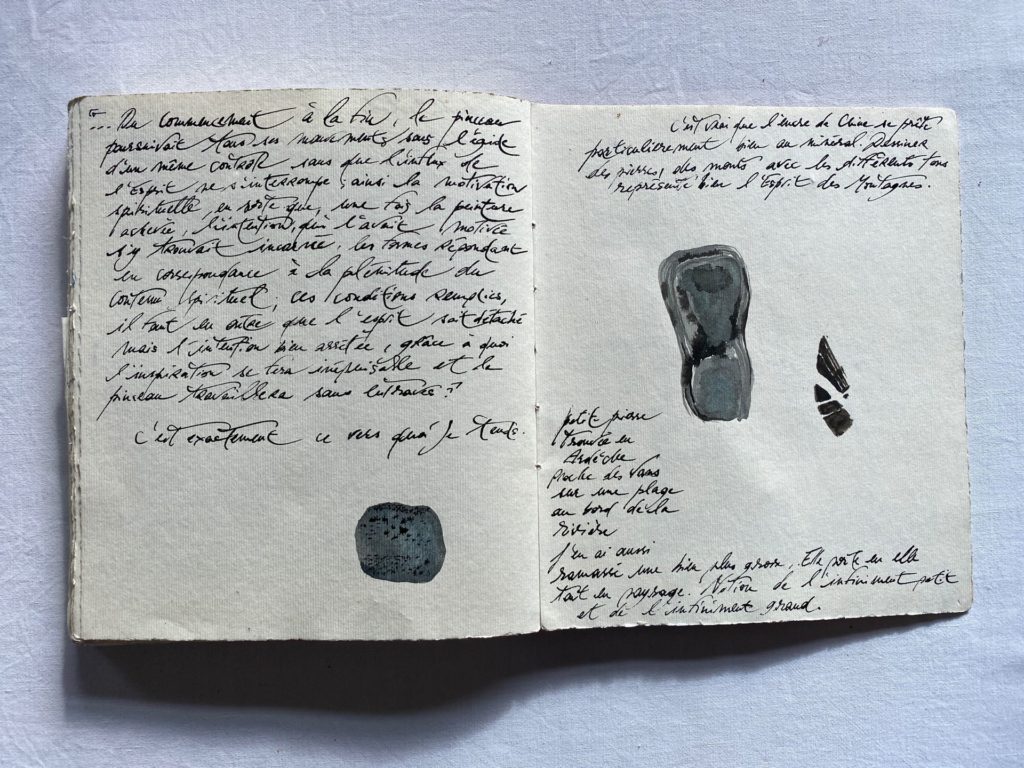 "... Du commencement à la fin, le pinceau
poursuivait tous ses mouvements sous l'égide
d'un même contrôle sans que l'influx de
l'Esprit ne s'interrompe, ainsi la motivation
spirituelle, en sorte que, une fois la peinture
achevée, l'intention qui l'avait motivée
s'y trouvait incarnée, les formes répondant
en correspondance à la plénitude du
contenu spirituel; ces conditions remplies,
il faut en outre que l'esprit soit détaché
mais l'intention bien arrêtée, grâce à quoi
l'inspiration se fera inépuisable et le
pinceau travaillera sans entrave"
c'est exactement ce vers quoi je tends.
C'est vrai que l'encre de Chine se prête
particulièrement bien au minéral. Dessiner
des pierres, des monts avec les différents tons
représente bien l'Esprit des Montagnes.
petit pierre
trouvée en
Ardèche
proche des Vans
sur une plage
au bord de la
rivière
J'en ai aussi
ramassé une bien plus grosse. Elle porte en elle
tout en paysage. Notion de l'infiniment petit
et de l'infiniment grand.